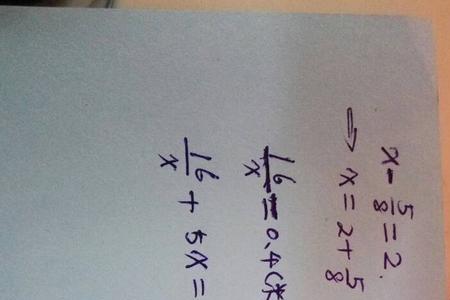 x - 5/8 = 2.
⇒ x = 2 + 5/8
16/x = 0.4(
16/x + 5x =